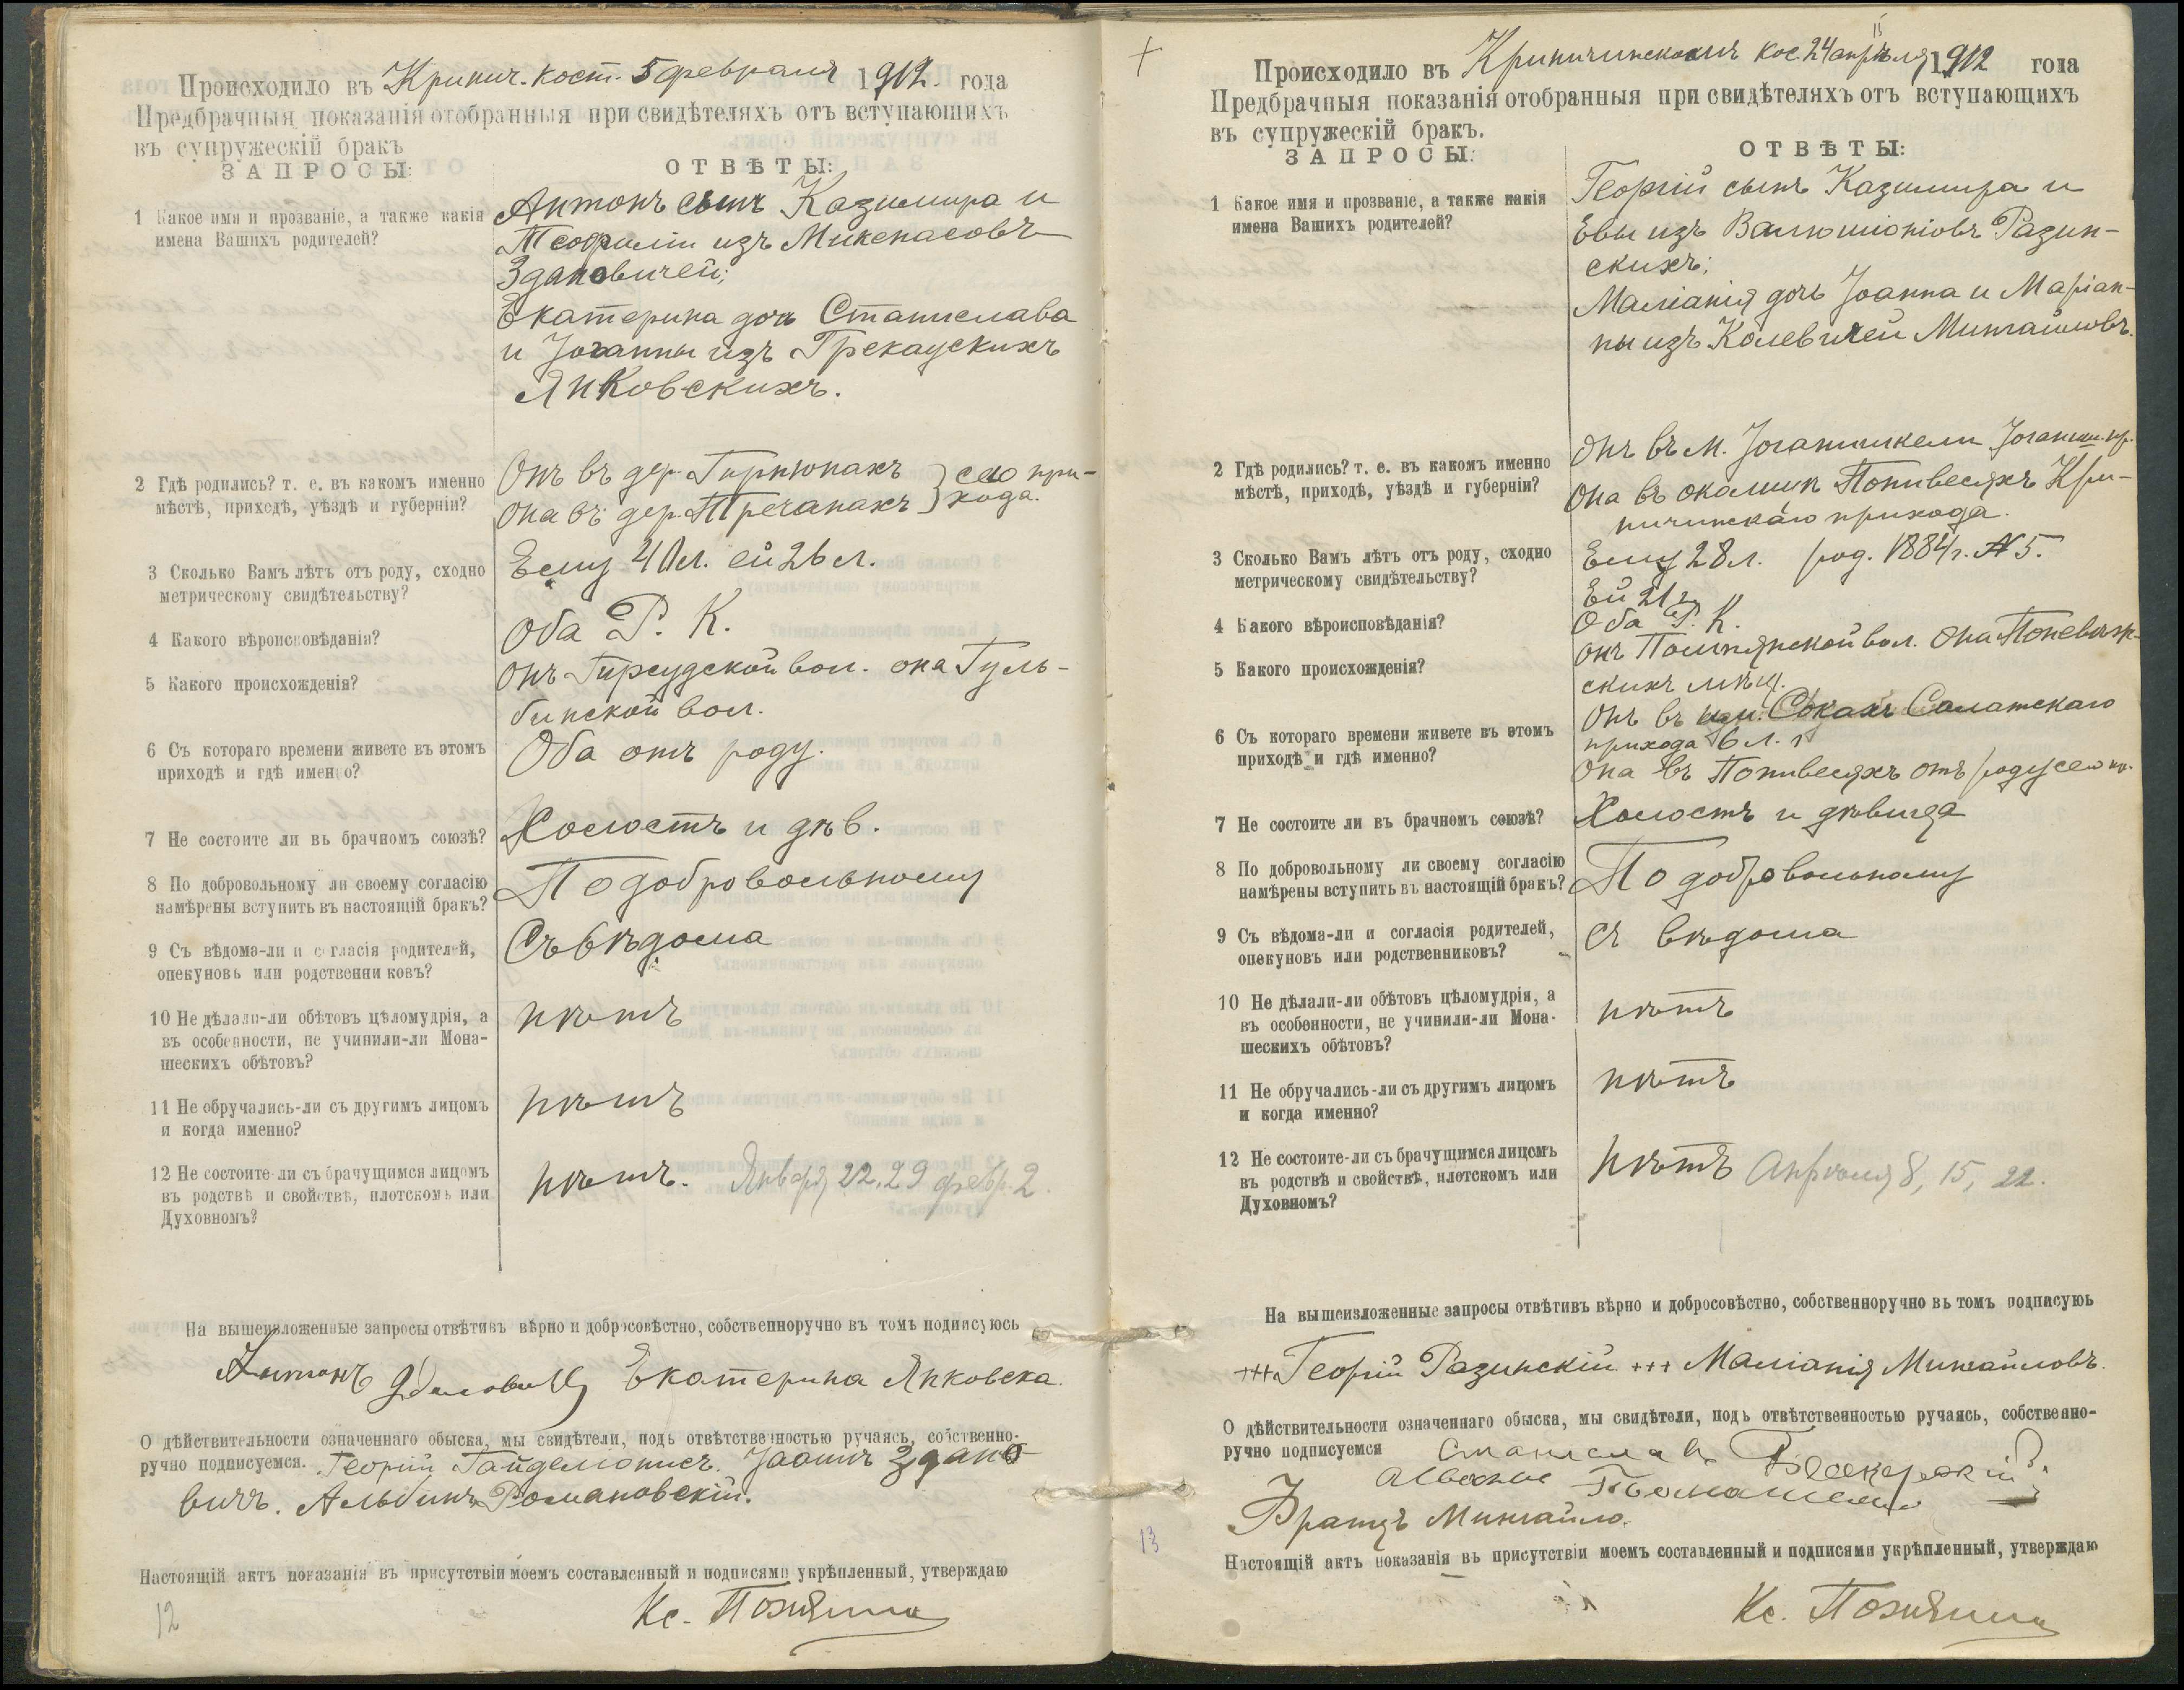 Происходило въ Кринич. кост. 5 февраля 1912. года
Предбрачныя показанія отобранныя при свидѣтеляхъ отъ вступающихъ
въ супружескій бракъ
ЗАПРОСЫ:
ОТВѢТЫ:
1 Какое имя и прозваніе, а также какія
имена Вашихъ родителей?
Антонъ сынъ Казимира и
Теофиліи изъ Микенасовъ
Здановичей;
Екатерина дочь Станислава
и Іоганны изъ Грекаускихъ
Янковскихъ.
2 Гдѣ родились? т. е. въ какомъ именно
мѣстѣ, приходѣ, уѣздѣ и губерніи?
Онъ въ дер. Гирнюнахъ
она въ дер. Тречанахъ } сего при-
хода.
3 Сколько Вамъ лѣтъ отъ роду, сходно
метрическому свидѣтельству?
Ему 40 л. ей 26 л.
4 Какого вѣроисповѣданія?
Оба Р. К.
5 Какого происхожденія?
онъ Гирсудской вол. она Гуль-
бинской вол.
6 Съ котораго времени живете въ этомъ
приходѣ и гдѣ именно?
Оба отъ роду.
7 Не состоите ли въ брачномъ союзѣ?
Холостъ и дѣв.
8 По добровольному ли своему согласію
намѣрены вступить въ настоящій бракъ?
По добровольному
9 Съ вѣдома-ли и согласія родителей,
опекуновъ или родственни ковъ?
Съ вѣдома
10 Не дѣлали-ли обѣтовъ цѣломудрія, а
въ особенности, не учинили-ли Мона-
шескихъ обѣтовъ?
нѣтъ
11 Не обручались-ли съ другимъ лицомъ
и когда именно?
нѣтъ
12 Не состоите-ли съ брачущимся лицомъ
въ родствѣ и свойствѣ, плотскомъ или
Духовномъ?
нѣтъ. Января 22, 29 февр. 2.
На вышеизложенные запросы отвѣтивъ вѣрно и добросовѣстно, собственноручно въ томъ подписуюсь
Антонъ Екатерина Янковска.
О дѣйствительности означеннаго обыска, мы свидѣтели, подъ отвѣтственностью ручаясь, собственно-
ручно подписуемся. Георгій Гайделіонисъ. Іоаннъ Здано
вичъ. Альбинъ Романовскій.
Настоящій актъ показанія въ присутствіи моемъ составленный и подписями укрѣпленный, утверждаю
Кс.
12
Происходило въ Криничинскомъ кос. 24 апрѣля 1912 года
Предбрачныя показанія отобранныя при свидѣтеляхъ отъ вступающихъ
въ супружескій бракъ.
ЗАПРОСЫ:
ОТВѢТЫ:
1 Какое имя и прозваніе, а также какія
имена Вашихъ родителей?
Георгій сынъ Казимира и
Евы изъ Валюшіоніовъ Разин-
скихъ;
Маліанія дочь Іоанна и Маріан-
ны изъ Колевичей Минтайловъ.
2 Гдѣ родились? т. е. въ какомъ именно
мѣстѣ, приходѣ, уѣздѣ и губерніи?
Онъ въ м. Іоганишкели Іоганиш. пр.
она въ Понивесяхъ Кри-
ничинскаго прихода.
3 Сколько Вамъ лѣтъ отъ роду, сходно
метрическому свидѣтельству?
Ему 28 л. род. 1884 г. № 5.
Ей 21 г.
4 Какого вѣроисповѣданія?
Оба Р. К.
5 Какого происхожденія?
онъ вол. она Поневѣж-
скихъ мѣщ.
6 Съ котораго времени живете въ этомъ
приходѣ и гдѣ именно?
Онъ въ им. Сокахъ Салатскаго
прихода 6 л.
она въ Понивесяхъ отъ роду сего пр.
7 Не состоите ли въ брачномъ союзѣ?
Холостъ и дѣвица
8 По добровольному ли своему согласію
намѣрены вступить въ настоящій бракъ?
По добровольному
9 Съ вѣдома-ли и согласія родителей,
опекуновъ или родственниковъ?
съ вѣдома
10 Не дѣлали-ли обѣтовъ цѣломудрія, а
въ особенности, не учинили-ли Мона-
шескихъ обѣтовъ?
нѣтъ
11 Не обручались-ли съ другимъ лицомъ
и когда именно?
нѣтъ
12 Не состоите-ли съ брачущимся лицомъ
въ родствѣ и свойствѣ, плотскомъ или
Духовномъ?
нѣтъ Апрѣля 8, 15, 22.
На вышеизложенные запросы отвѣтивъ вѣрно и добросовѣстно, собственноручно въ томъ подписуюь
+++ Георгій Разинскій +++ Маліанія Минтайловъ.
О дѣйствительности означеннаго обыска, мы свидѣтели, подъ отвѣтственностью ручаясь, собственно-
ручно подписуемся
Францъ Минтайло.
Настоящій актъ показанія въ присутствіи моемъ составленный и подписями укрѣпленный, утверждаю
Кс.
13